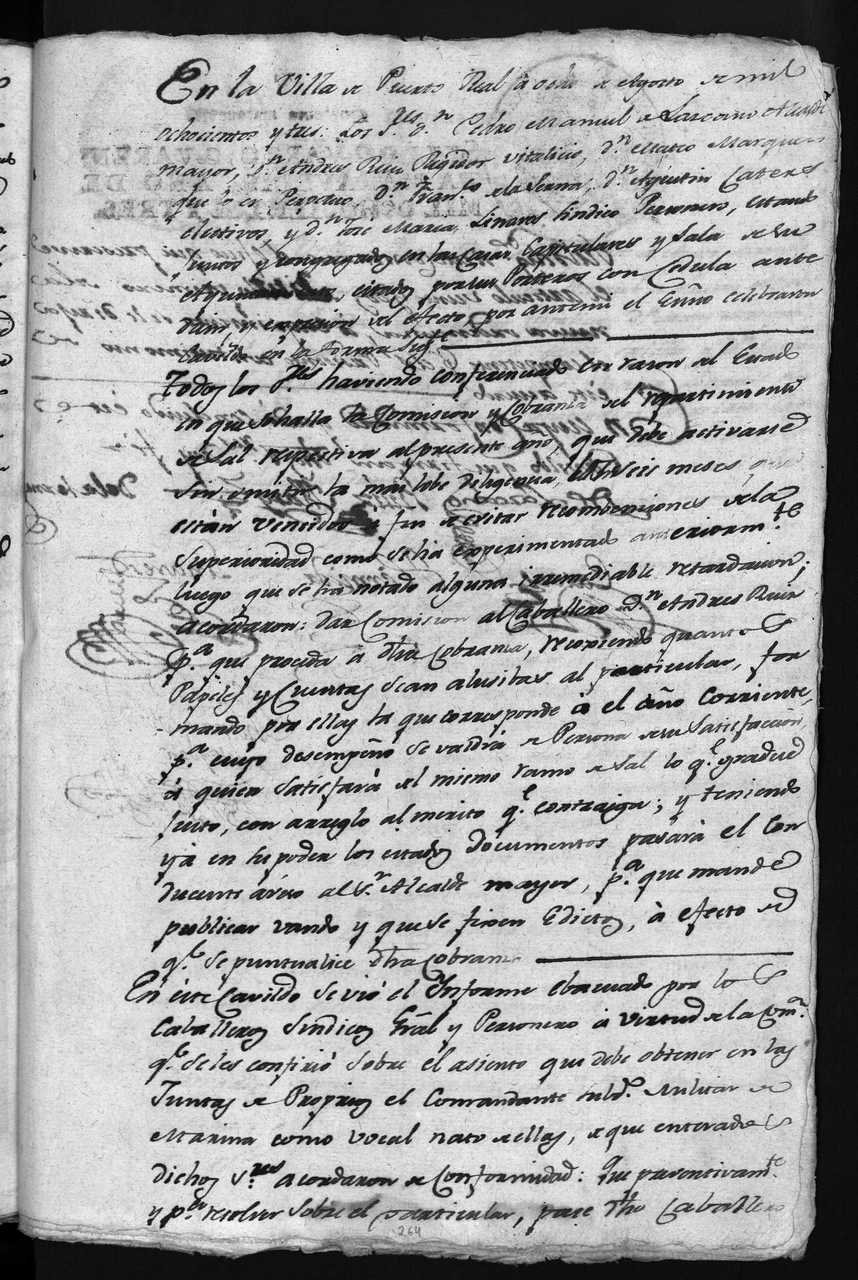 En la Villa de Puerto Real à ocho de Agosto de mil
ochocientos y tres: Los S.res D.n Pedro Manuel de Lazcano Alcalde
mayor, D.n Andres Ruiz Regidor vitalicio, D.n Mateo Marquez
que lo es Perpetuo, D.n Fran.co de la Serna, D.n Agustin Cateres
electivos, y D.n José Maria Linares Sindico Personero, estando
juntos y congregados en las Casas Capitulares y Sala de su
Ayuntamiento, citados por sus Porteros con Cedula ante
diem expresiva del efecto, por antemi el Essno celebraron
Cavildo en la forma sig.te
Todos los S.res haviendo conferenciado con razon al Estado
en que se halla la Comision y Cobranza del repartimiento
de Sal respectiva al presente año, que debe activarse
sin omitir la mas lebe diligencia, los seis meses que
están vencidos à fin de evitar recombenciones de la
Superioridad como se ha experimentado anteriorm.te
luego que se ha notado alguna irremediable retardacion;
acordaron: dar Comision al Caballero D.n Andres Ruiz
p.a que proceda à dha Cobranza, recogiendo quantos
Papeles y Cuentas sean alusibas al particular, for
mando por ellas la que corresponde à el año Corriente,
p.a cuyo desempeño se valdrá de Persona de su Satisfaccion
à quien satisfará del mismo ramo de Sal lo q.e gradue
justo, con arreglo al merito q.e contraiga; y teniendo
yà en su poder los citados Documentos pasará el Con
ducente aviso al S.r Alcalde mayor, p.a que mande
publicar vando y que se fixen Edictos, à efecto de
q.e se puntualice dha Cobranza
En este Cavildo se vió el Informe ebacuado por los
Caballeros Sindicos Gral y Personero à virtud de la Com.on
q.e se les confirió sobre el asiento que debe obtener en las
Juntas de Proprios el Comandante Militar de
Marina como vocal nato de ellas, de que enterados
dichos S.res acordaron de Conformidad: Que preventivam.te
y p.a resolver sobre el particular, pase dho Caballero
264